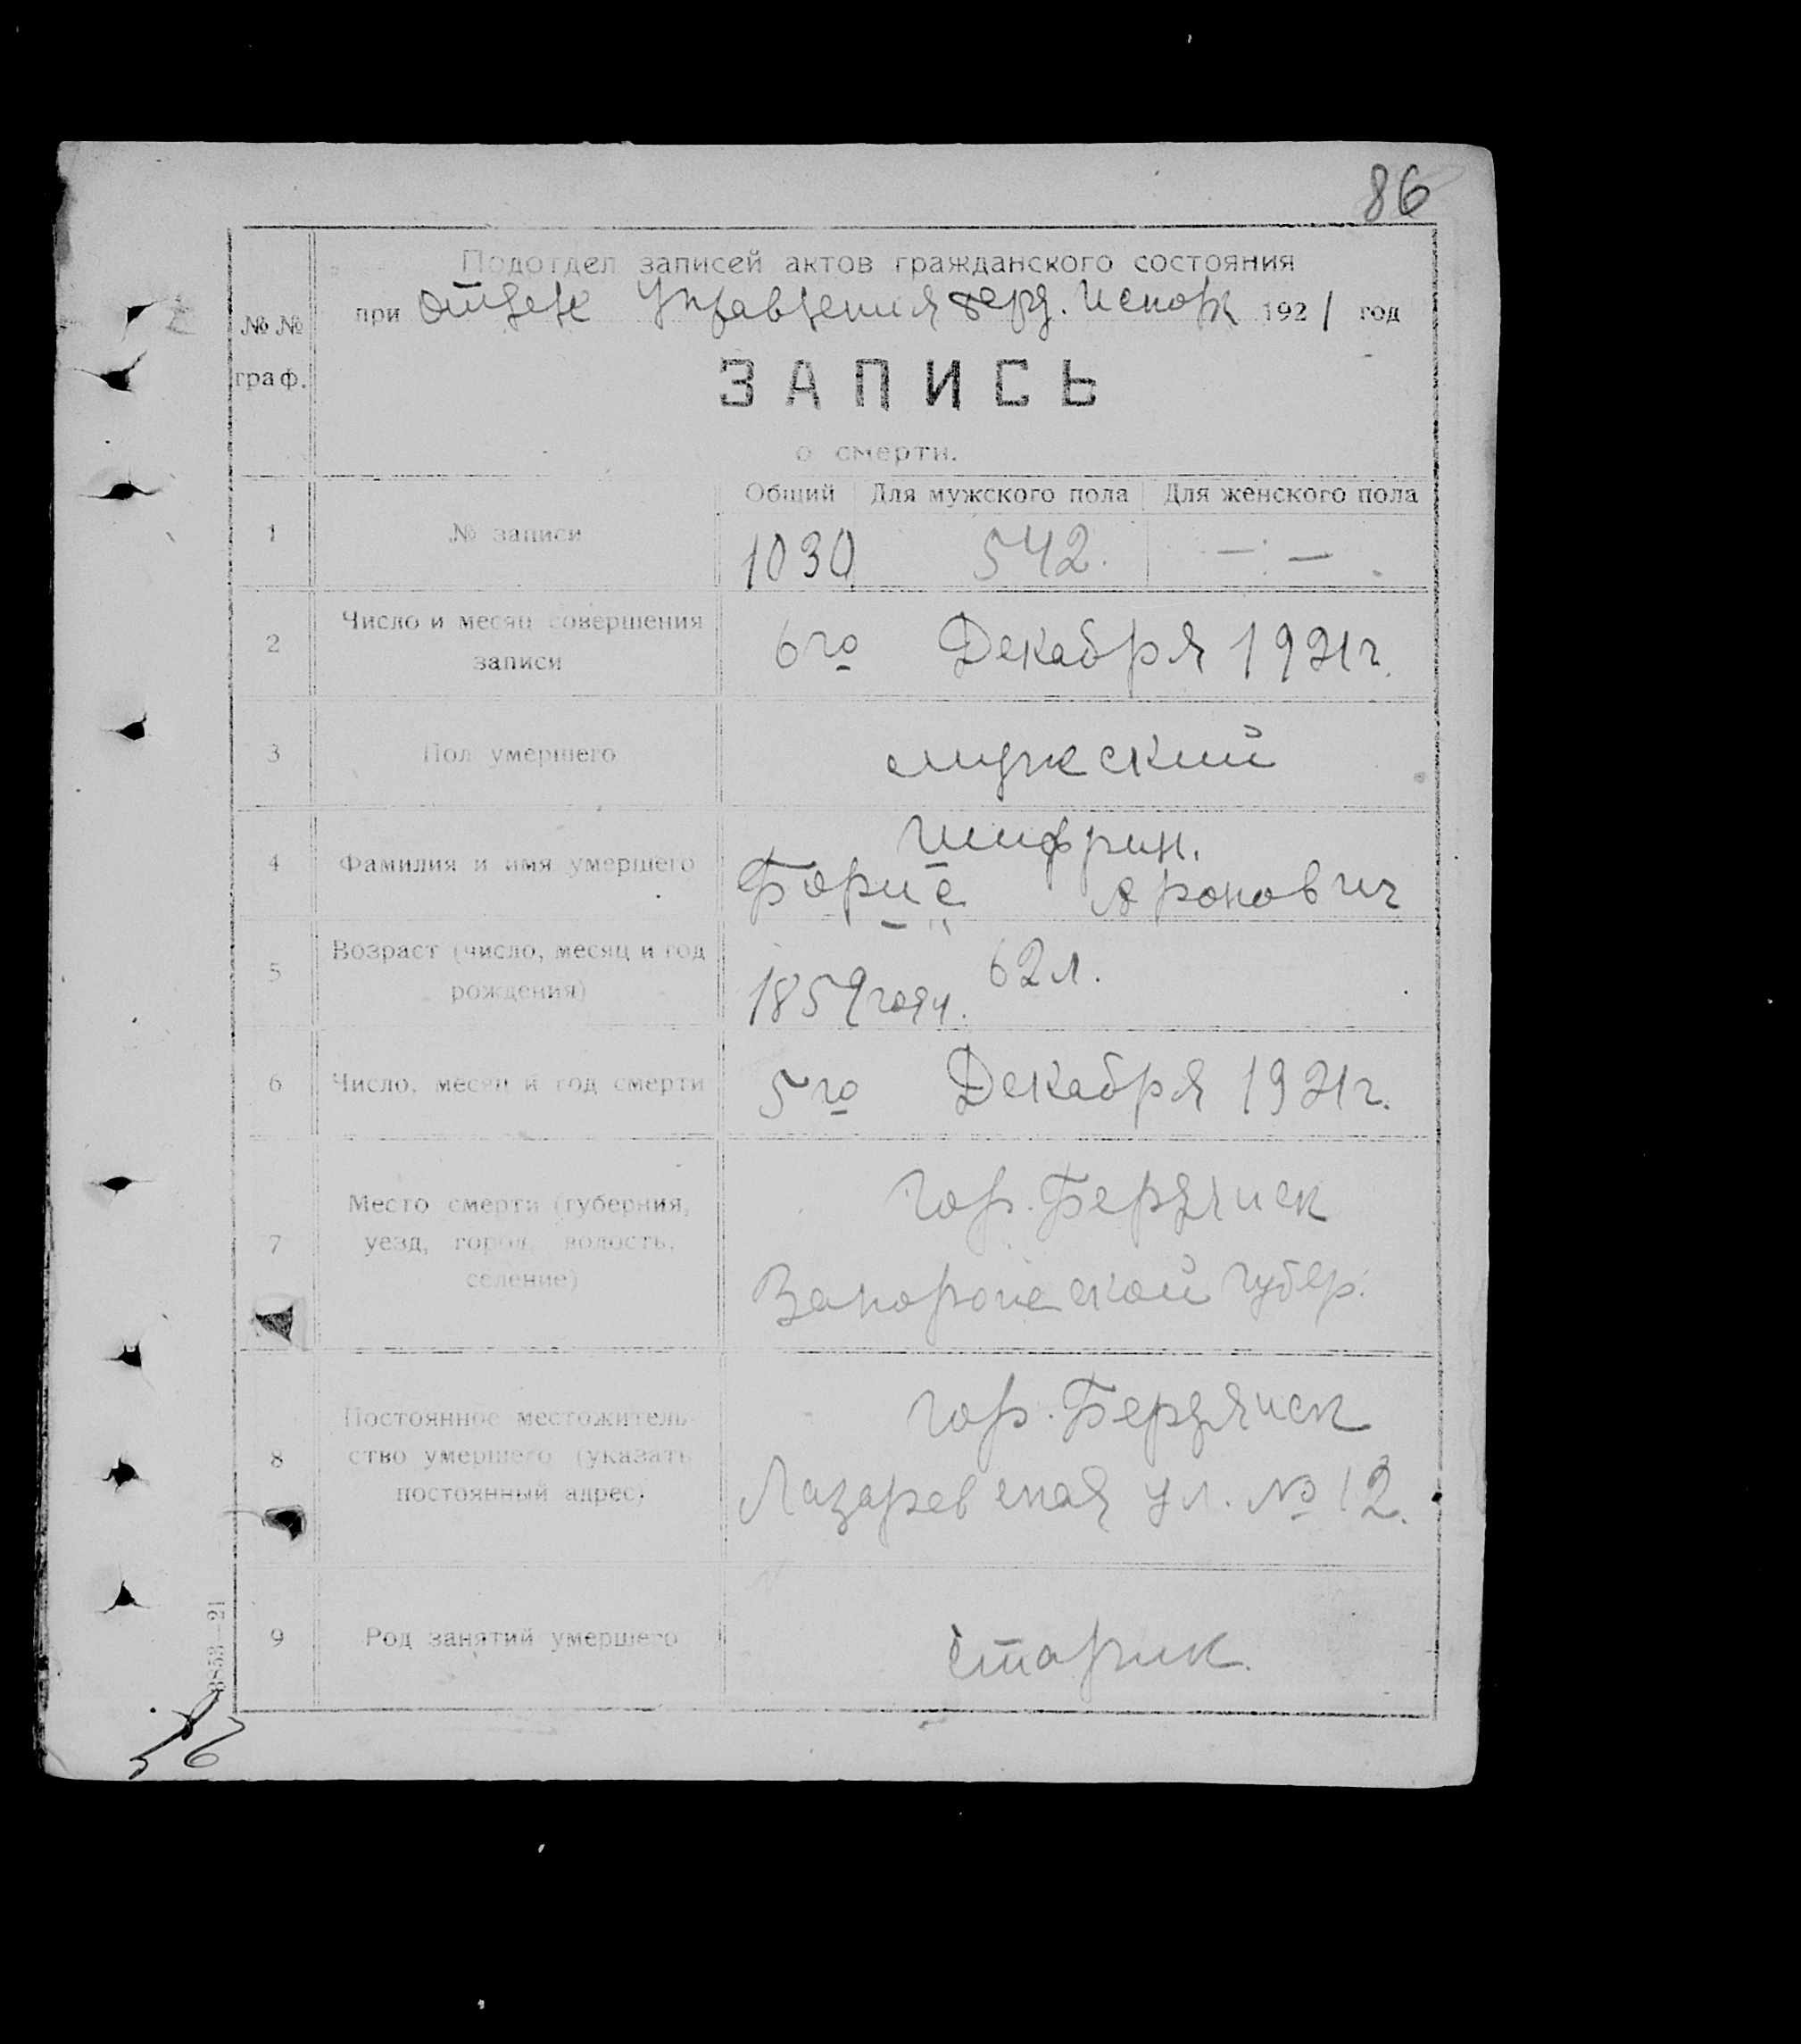 86
Подотдел записей актов гражданского состояния
при Отделе Управления Берд. Исполк 1921 год
№№ граф.
ЗАПИСЬ
о смерти.
Общий Для мужского пола Для женского пола
1 № записи 1030 542. —:—.
2 Число и месяц совершения
записи 6го Декабря 1921г.
3 Пол умершего мужской
Шифрин.
4 Фамилия и имя умершего Борис Аронович
5 Возраст (число, месяц и год
рождения) 1859 годн. 62 л.
6 Число, месяц и год смерти 5го Декабря 1921г.
7 Место смерти (губерния,
уезд, город, волость,
селение)
гор. Бердянск
Запорожской губер.
8 Постоянное местожитель-
ство умершего (указать
постоянный адрес)
гор. Бердянск
Лазаревская ул. № 12.
9 Род занятий умершего старик.
3853—21